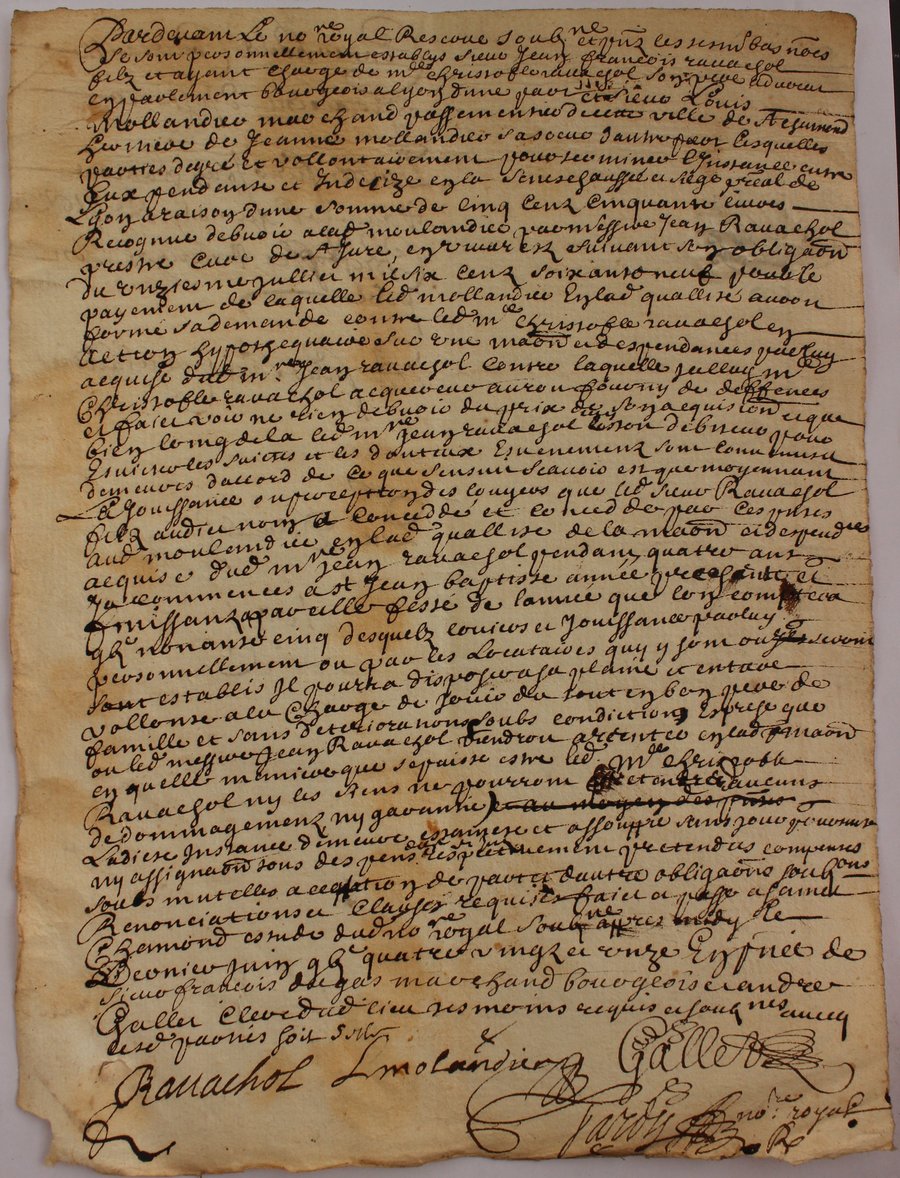 Pardevant Le no.re royal Reserve soub.ne et p.nz les tesm. bas nōes
se sont personnellement establys sieur Jean françois ravachol
filz et ayant charge de m.re christofle ravachol son pere advocat
en parlement bourgeois a lyon dune part et sieur Louis
Mollandier marchand passementier de cette ville de St chamond
her. mere de Jeanne mollandier sa soeur dautre part lesquelles
parties de gré et vollontairement pour terminer l'Instance entre
Eux pendante et Indecize en la seneschaussée et siege p.real de
Lyon a raison dune somme de cinq centz cinquante livres
Recognue debvoir a lad. moulandier par messire Jean Ravachol
prestre curé de St Jure, en suivant son obligaōn
du onziesme Juillet mil six centz soixante neuf pour le
payement de laquelle led. mollandier En lad. quallité auroit
formé sa demande contre led. m.re christofle ravachol en
action hypothequaire sur une maōn et despendances par luy
acquise dud. m.re Jean ravachol contre laquelle led. m.re
Christofle ravachol acquereur auroit fourny de deffences
et faict voir ne rien debvoir du prix de son acquisiōn et que
bien loing de la led. m.re Jean ravachol est son debiteur pour
Esviter les suittes et les doubteux Esvenementz sont convenus et
demeurés daccord de ce que sensuit scavoir est que moyennant
La Jouissance ou perception des louyers que led. sieur Ravachol
filz aud. nom a concedde et concedde par ces p.ntes
aud. moulandier en lad. quallité de la maōn et despend.ces
acquise dud. m.re Jean ravachol pendant quatre ans
Ja commencés a st Jean baptiste année presente et
finissant a pareille feste de lannée que lon comptera
nonante cinq desquelz louiers et Jouissance par luy
personnellement ou par les Locataires quy y sont ou seront
establis Il pourra disposer a sa plaine et entiere
vollonté a la charge de Jouir du tout en bon pere de
famille et sans deterioraōns soubs condiction Expresse que
ou led. messire Jean Ravachol viendroit attenter en lad. maōn
en quelle maniere que se puisse estre led. m.re christofle
Ravachol ny les siens ne pourront estre tenus daucuns
dedommagementz ny garantie
Ladicte Instance demeure esteinte et assoupie sans pouvoir
ny assignaōn tous despens respectivement pretendus compensés
soubs mutuelles acceptation de part et dautre obligaōns soub.ons
Renonciations et clauses requises faict et passé a sainct
Chamond estude dud. no.re royal soub.ne appres midy le
Dernier Juin quatre vingt et onze En p.nce de
sieur françois dugas marchand bourgeois et andré
Gallet clerc dud. lieu tesmoins requis et soub.nes avecq
lesd. parties
Ravachol L molandier Gallet
no.re royal